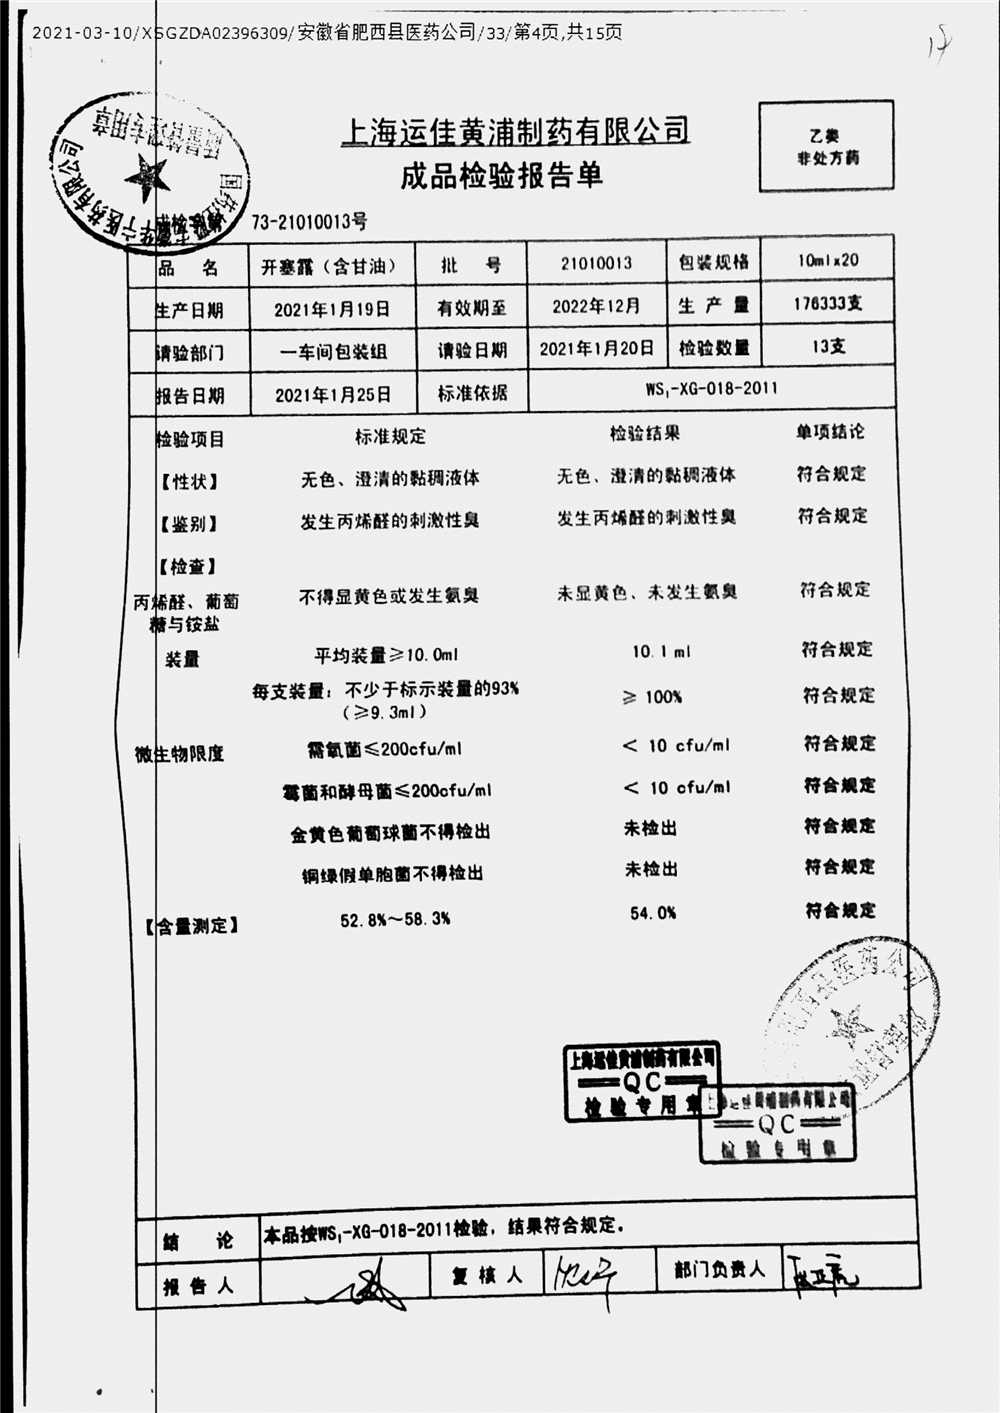 2021-03-10/XSGZDA02396309/安徽省肥西县医药公司/33/第4页,共15页
上海运佳黄浦制药有限公司
成品检验报告单
乙类
非处方药
73-21010013号
品 名 开塞露（含甘油） 批 号 21010013 包装规格 10mlx20
生产日期 2021年1月19日 有效期至 2022年12月 生 产 量 176333支
请验部门 一车间包装组 请验日期 2021年1月20日 检验数量 13支
报告日期 2021年1月25日 标准依据 WS₁-XG-018-2011
检验项目 标准规定 检验结果 单项结论
【性状】 无色、澄清的黏稠液体 无色、澄清的黏稠液体 符合规定
【鉴别】 发生丙烯醛的刺激性臭 发生丙烯醛的刺激性臭 符合规定
【检查】
丙烯醛、葡萄
糖与铵盐 不得显黄色或发生氨臭 未显黄色、未发生氨臭 符合规定
装量 平均装量≥10.0ml 10.1ml 符合规定
每支装量：不少于标示装量的93%
（≥9.3ml） ≥100% 符合规定
微生物限度 需氧菌≤200cfu/ml ＜10 cfu/ml 符合规定
霉菌和酵母菌≤200cfu/ml ＜10 cfu/ml 符合规定
金黄色葡萄球菌不得检出 未检出 符合规定
铜绿假单胞菌不得检出 未检出 符合规定
【含量测定】 52.8%～58.3% 54.0% 符合规定
上海运佳黄浦制药有限公司
QC
检验专用章
上海运佳黄浦制药有限公司
QC
检验专用章
结 论 本品按WS₁-XG-018-2011检验，结果符合规定。
报告人 复核人 部门负责人